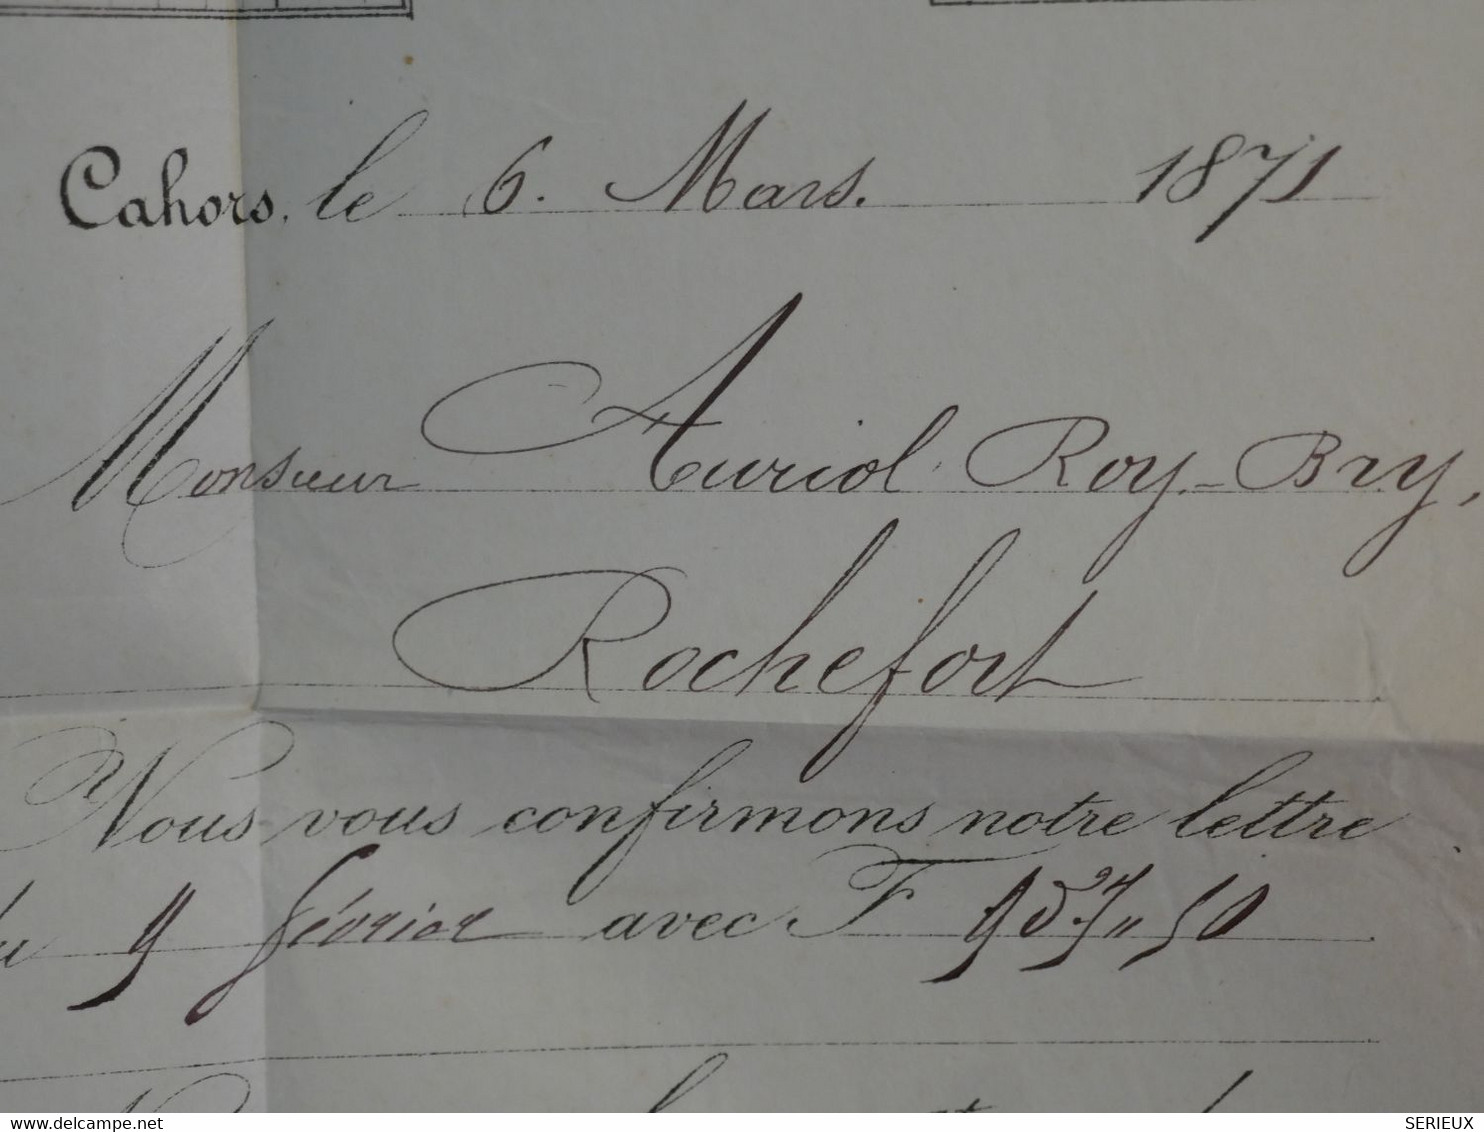 Cahors, le 6. Mars. 1871
Monsieur Auriol Roy-Bry,
Rochefort
Nous vous confirmons notre lettre
du 9 février avec F
SERIEUX